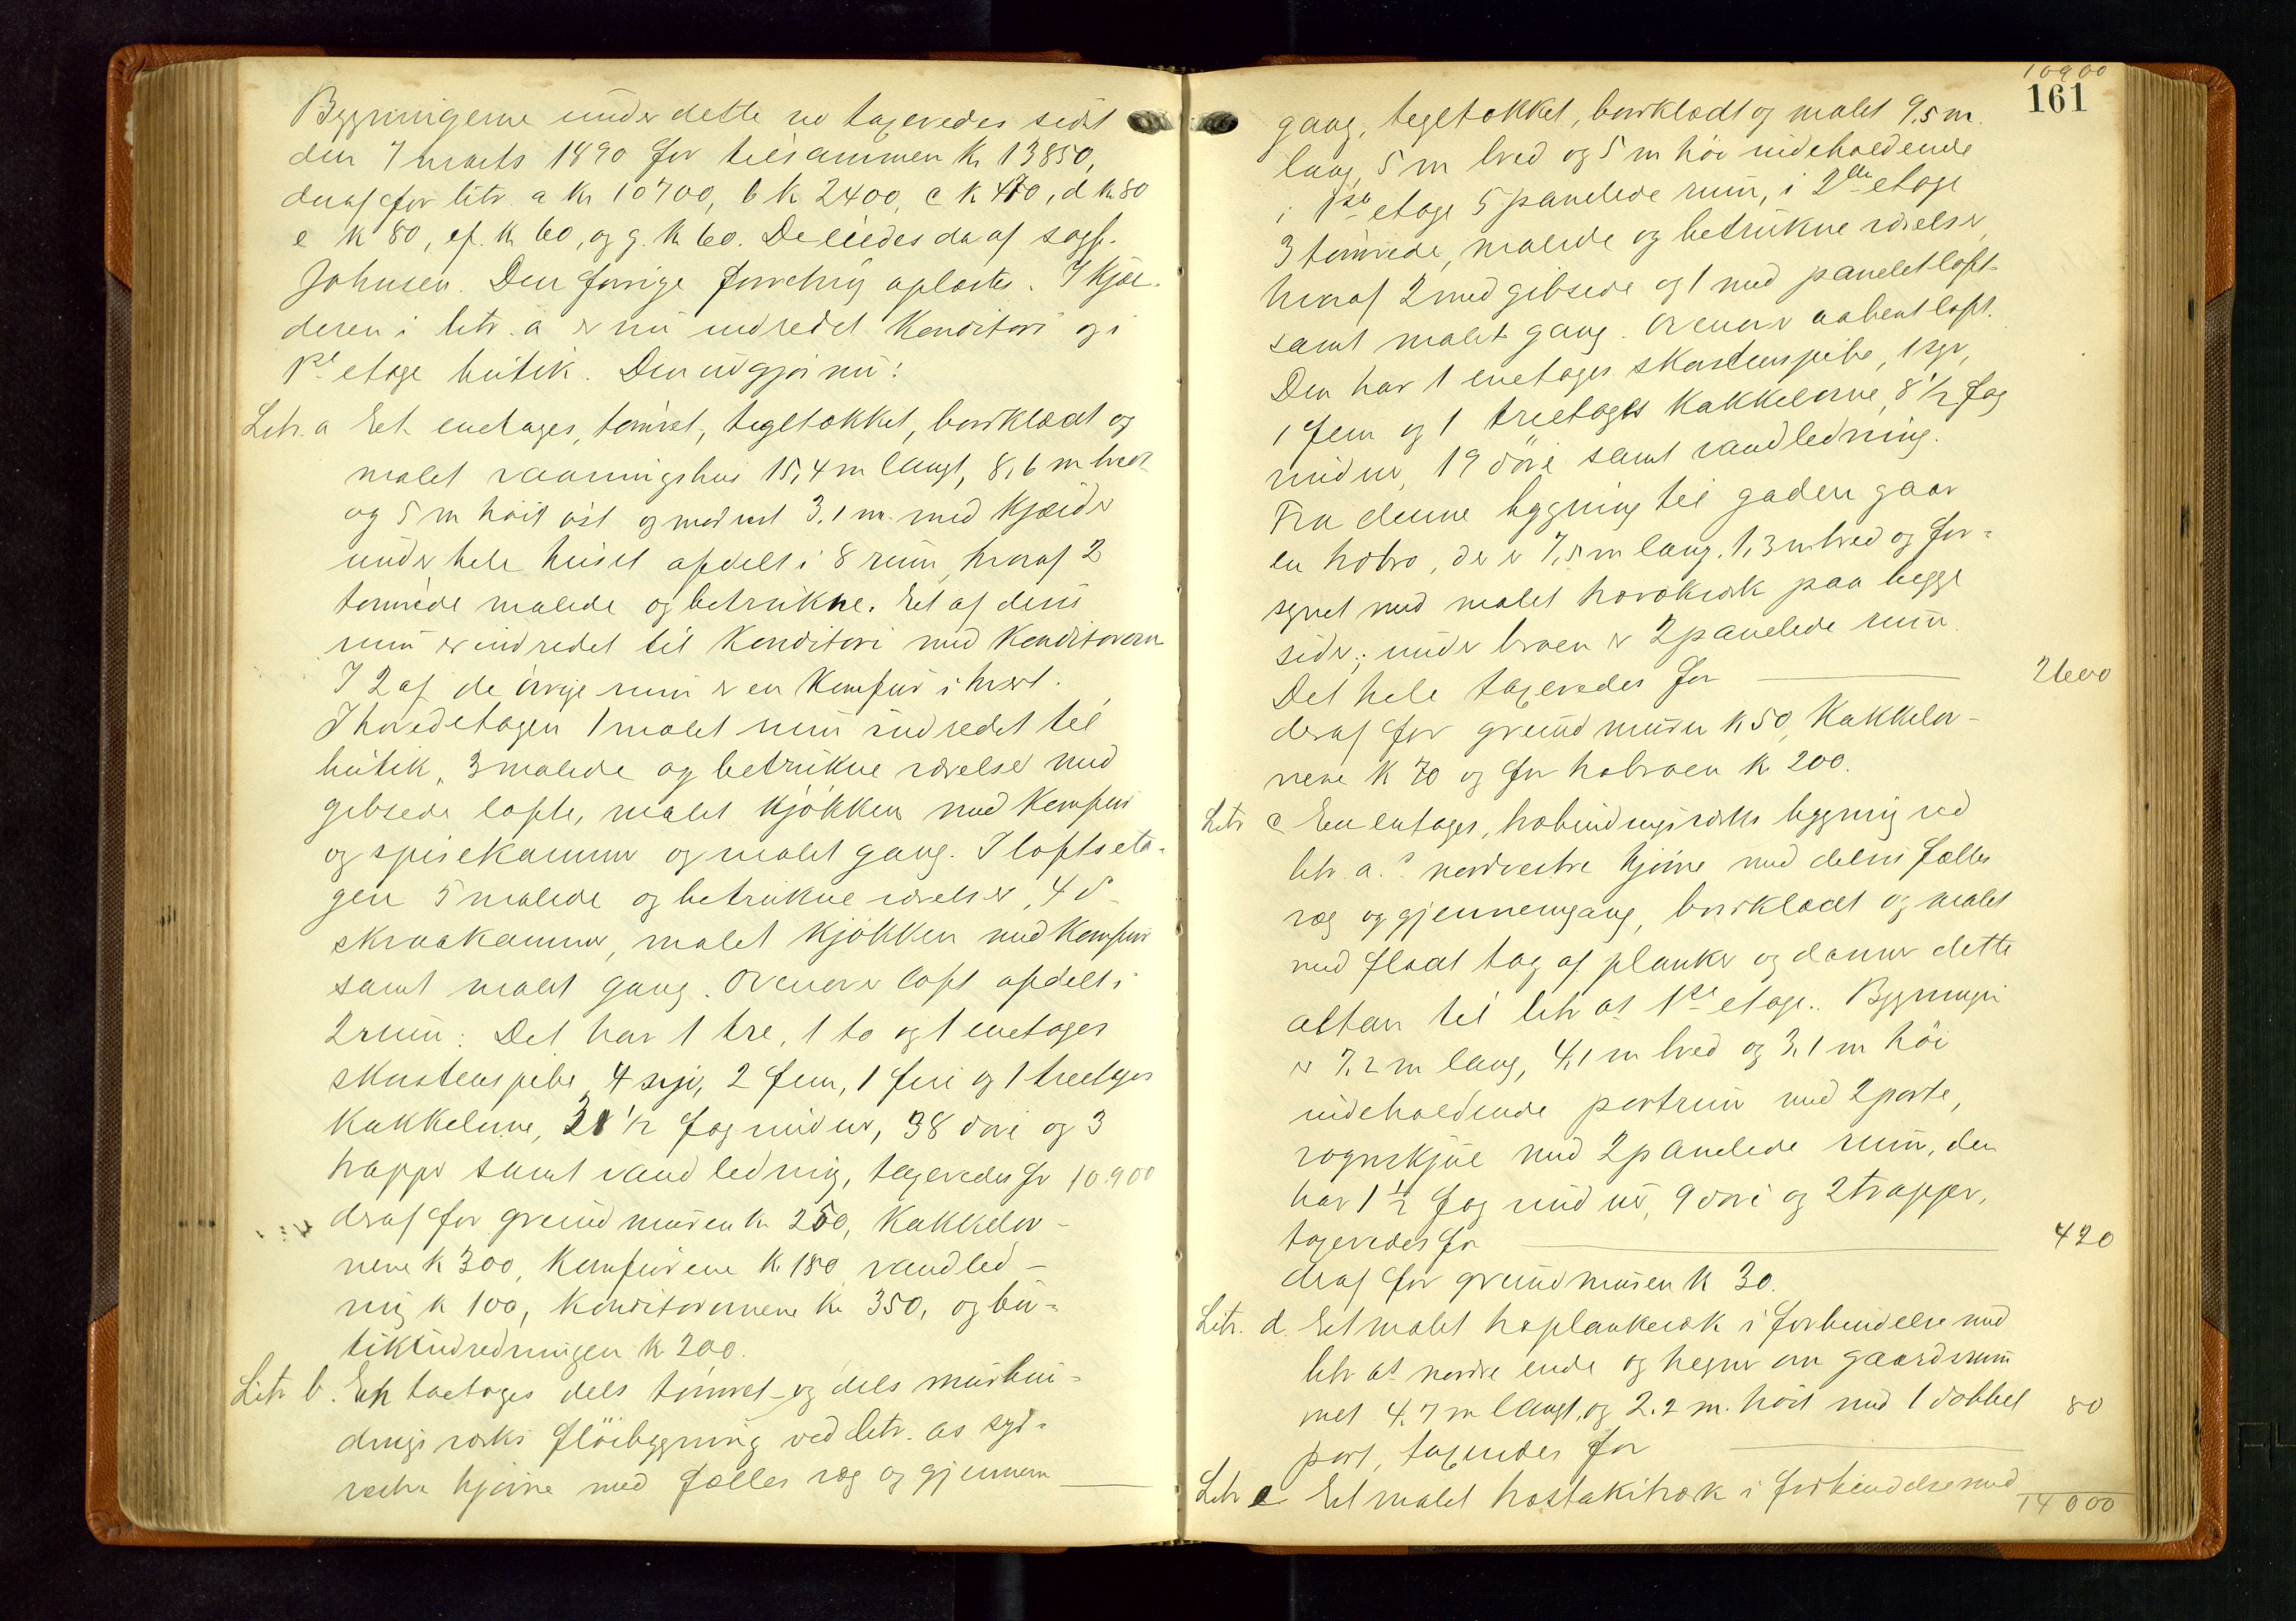 Bygningerne under dette no taxeredes sidst
den 7 marts 1890 for tilsammen Kr 13850,
deraf for litr. a Kr 10700, b K 2400, c K 470, d K 80
e K 80, f. K 60, og g. K 60. De eiedes da af sagf.
Johnsen. Den forrige forretning oplæstes. I kjæl-
deren i litr. a er nu indredet Konditori og i
1ste etage butik. Den udgjør nu:
Litr. a Et enetages, tømret, tegltækket, bordklædt og
malet vaaningshus 15,4 m langt, 8,6 m bredt
og 5 m høit øst og mod vest 3,1 m. med Kjælder
under hele huset afdelt i 8 rum, hvoraf 2
tømrede malede og betrukne. Et af dem
rum er indredet til Konditori med Konditorovn
I 2 af de øvrige rum er en Komfur i hvert.
I hovedetagen 1 malet rum indredet til
butik, 3 malede og betrukne værelser med
gibsede lofte, malet Kjøkken med Komfur
og spisekammer og malet gang. I loftseta-
gen 5 malede og betrukne værelser, 4
skraakammer, malet Kjøkken med Komfur
samt malet gang. Ovenover loft afdelt i
2 rum. Det har 1 tre, 1 to og 1 enetages
skorstenspibe, 4 syv, 2 fem, 1 fire og 1 treetages
Kakkelovne, 31 1/2 fag vinduer, 38 døre og 3
trapper samt vandledning, taxeredes for 10.900
deraf for grundmuren kr 250, Kakkelov-
nene k 300, Komfurene K. 180 vandled-
ning k 100, Konditorovnene Kr 350, og bu-
tikindredningen kr 200.
Litr b. En toetages dels tømret og dels murbin-
dingsværks fløibygning ved litr. as syd-
vestre hjørne med fælles væg og gjennem
10900
161
gang, tegltækket, bordklædt og malet 9,5 m.
lang, 5 m bred og 5 m høi indeholdende
i 1ste etage 5 panelede rum, i 2den etage
3 tømrede, malede og betrukne værelser
hvoraf 2 med gibsede og 1 med panelet loft
samt malet gang. Ovenover aabent loft.
Den har 1 enetages skorstenspibe, 1 syv,
1 fem og 1 treetages Kakkelovne, 8 1/2 fag
vinduer, 19 døre samt vandledning.
Fra denne bygning til gaden gaar
en træbro, der er 7,5 m lang. 1,3 m bred og for-
synet med malet trærækværk paa begge
sider; under broen er 2 panelede rum
Det hele taxeredes for 2600
deraf for grundmuren K 50, Kakkelov-
nene K 70 og for træbroen k 200.
Litr c En enetages, træbindingsværks bygning ved
litr. a.s nordvestre hjørne med delvis fælles
væg og gjennemgang, bordklædt og malet
med fladt tag af planker og danner dette
altan til litr as 1ste etage. Bygningen
er 7,2 m lang, 4,1 m bred og 3,1 m høi
indeholdende portrum med 2 porte,
vognskjul med 2 panelede rum, den
har 1 1/2 fag vinduer, 9 døre og 2 trapper,
taxeredes for 420
deraf for grundmuren K 30.
Litr. d. Et malet træplankeværk i forbindelse med
litr as nordre ende og hegner om gaardsrum
met 4.7 m langt, og 2.2 m. høit med 1 dobbel 80
port, taxeredes for
Litr e Et malet træstakitværk i forbindelse med
14000